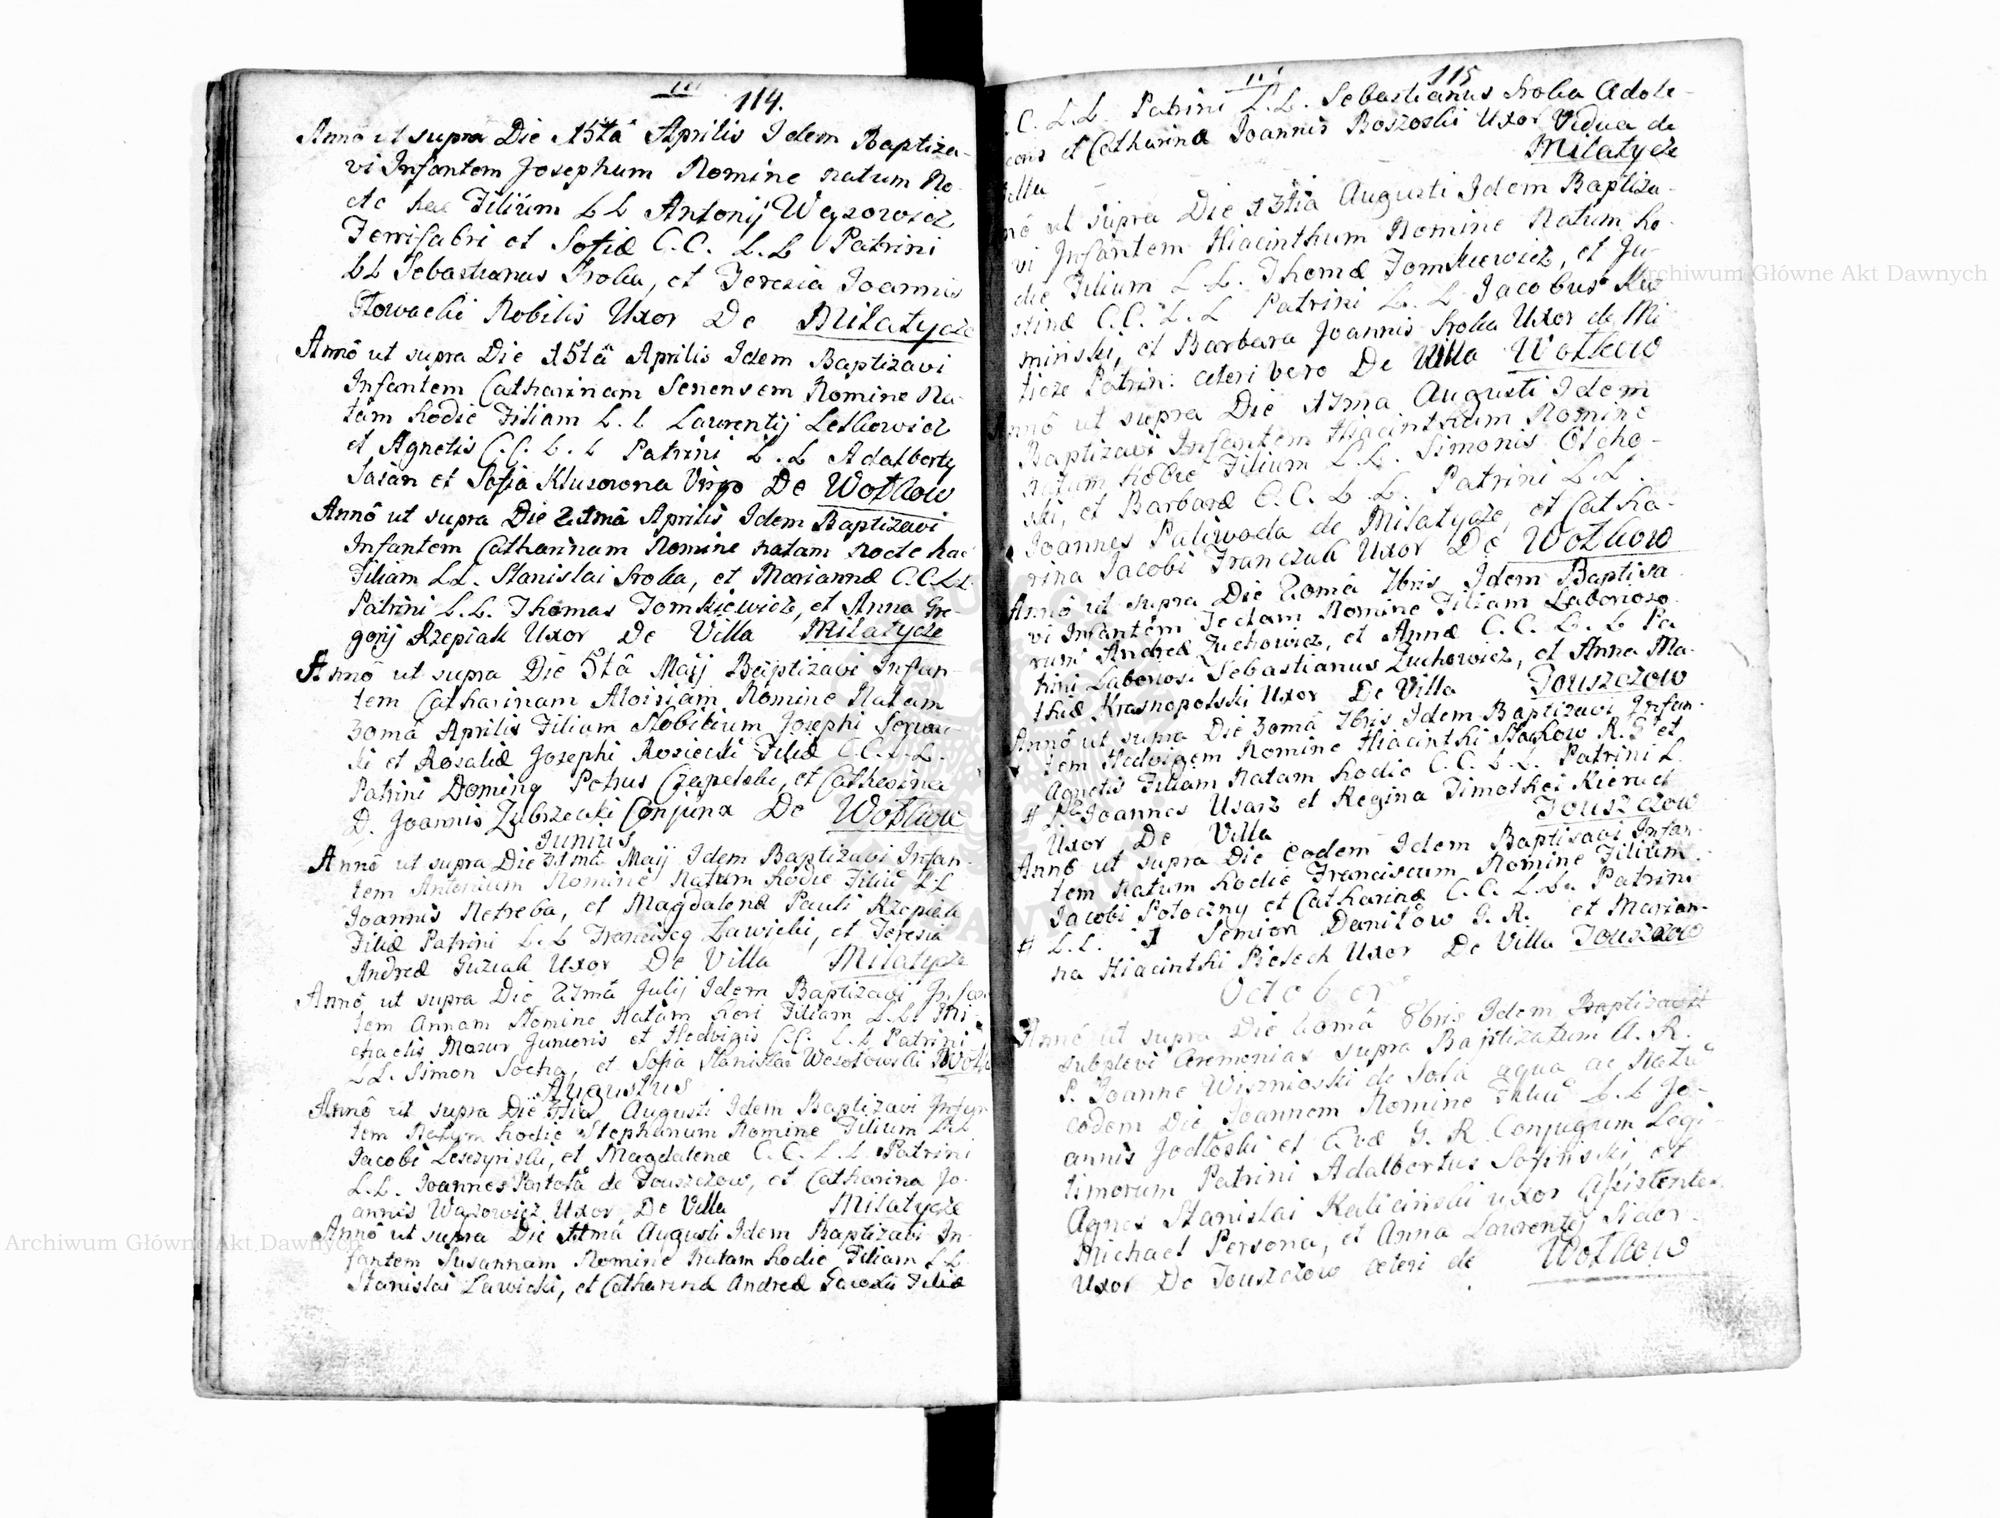 114.
Annô ut supra Die 15tâ Aprilis Idem Baptiza-
vi Infantem Josephum Nomine natum No-
cte hac Filium L L Antonij Węzowicz
Ferrifabri et Sofiæ C.C. L.L Patrini
LL Sebastianus Sroka, et Teresia Joannis
Słowacki Nobilis Uxor De Milatycze
Annô ut supra Die 15tâ Aprilis Idem Baptizavi
Infantem Catharinam Senensem Nomine Na-
tam hodie Filiam L. L Laurentij Letkowicz
et Agnetis C.C. L. L Patrini L. L Adalberty
Sasan et Sofia Kluzowona Virgo De Wołkow
Annô ut supra Die 21mâ Aprilis Idem Baptizavi
Infantem Catharinam Nomine natam nocte hac
Filiam LL. Stanislai Sroka, et Mariannæ C.C.LL.
Patrini L.L. Thomas Tomkiewicz, et Anna Gre-
gorij Rzepiak Uxor De Villa Milatycze
Annô ut supra Die 5tâ Maij Baptizavi Infan-
tem Catharinam Aloisiam Nomine Natam
30mâ Aprilis Filiam Nobilium Josephi
ki et Rosaliæ Josephi Filiæ C.C. L.L.
Patrini Doming Petrus Czapelski, et Catherina
D. Joannis Zubrzycki Conjunx De Wołkow
Junius
Annô ut supra Die 31mâ Maij Idem Baptizavi Infan-
tem Antonium Nomine Natum hodie Filiũ LL
Joannis Netreba, et Magdalenæ Pauli Rzepiak
Filiæ Patrini L.L Francisc Zawicki, et Teresia
Andreæ Guziak Uxor De Villa Milatycze
Annô ut supra Die 21mâ Julij Idem Baptizavi Infan
tem Annam Nomine Natam heri Filiam L.L. Mi-
chaelis Mazur Junioris et Hedvigis C.C. L.L Patrini
L.L. Simon Socha, et Sofia Stanislai Wesołowski Wołk
Augustus
Annô ut supra Die Augusti Idem Baptizavi Infan
tem Natum hodie Stephanum Nomine Filium LL
Jacobi Leszczynski, et Magdalenæ C. C. L.L Patrini
L.L. Joannes de Touszczow, et Catharina Jo-
annis Wązowicz Uxor De Villa Milatycze
Annô ut supra Die Augusti Idem Baptizavi In-
fantem Susannam Nomine Natam hodie Filiam L L
Stanislai Lawicki, et Catharinæ Andreæ Filiæ
115
C.C. L.L. Patrini L.L. Sebastianus Sroka Adole-
cens et Catharina Joannis Boszoski Uxor Vidua de
Villa Milatycze
ut supra Die 13tia Augusti Idem Baptiza-
vi Infantem Hiacinthum Nomine Natum ho-
die Filium L.L. Thomæ Tomkiewicz, et Ju-
stinæ C.C. L.L Patrini L. L Jacobus Ka-
minski, et Barbara Joannis Sroka Uxor de Mi-
ticze Patrin: ceteri vero De Villa Wołkow
Annô ut supra Die 17ma Augusti Idem
Baptizavi Infantem Hiacinthum Nomine
natum hodie Filium L.L. Simonis Olcho-
ski, et Barbaræ C.C. L L. Patrini L.L.
Joannes Paliwoda de Milatycze, et Catha-
rina Jacobi Franczak Uxor De Wołkow
Annô ut supra Die 20mâ 7bris Idem Baptiza-
vi Infantem Teclam Nomine Filiam Laborioso-
rum Andreæ Zuchowicz, et Annæ C. C. L. L Pa-
trini Laboriosi Sebastianus Zuchowicz, et Anna Ma-
thiæ Krasnopolski Uxor De Villa Touszczow
Annô ut supra Die 30mâ 7bris Idem Baptizavi Infan-
tem Hedvigem Nomine Hiacinthi Stachow R. G et
Agnetis Filiam Natam hodie C.C. L.L. Patrini L.
# Joannes Usarz et Regina Timothei Kieruct
Uxor De Villa Touszczow
Annô ut supra Die eodem Idem Baptisavi Infan-
tem Natum hodie Franciscum Nomine Filium
Jacobi Potoczny et Catharinæ C.C. L.L. Patrini
# L.L. Semion Daniłow G. R. et Marian-
na Hiacinthi Uxor De Villa Touszczow
October
Annô ut supra Die 20mâ 8bris Idem Baptizavit
subplevi Ceremonias supra Baptizatum A. R.
P. Joanne Wisznioski de Sola aqua ac Natũ
eodem Die Joannem Nomine Filiũ L.L Jo-
annis Jodłoski et Evæ G. R. Conjugum Legi-
timorum Patrini Adalbertus Sofinski, et
Agnes Stanislai Kalicinski uxor Assistentes
Michael Persona, et Anna Laurentij Sidor
Uxor De Touszczow ceteri de Wołkow
Archiwum Główne Akt Dawnych
Archiwum Główne Akt Dawnych